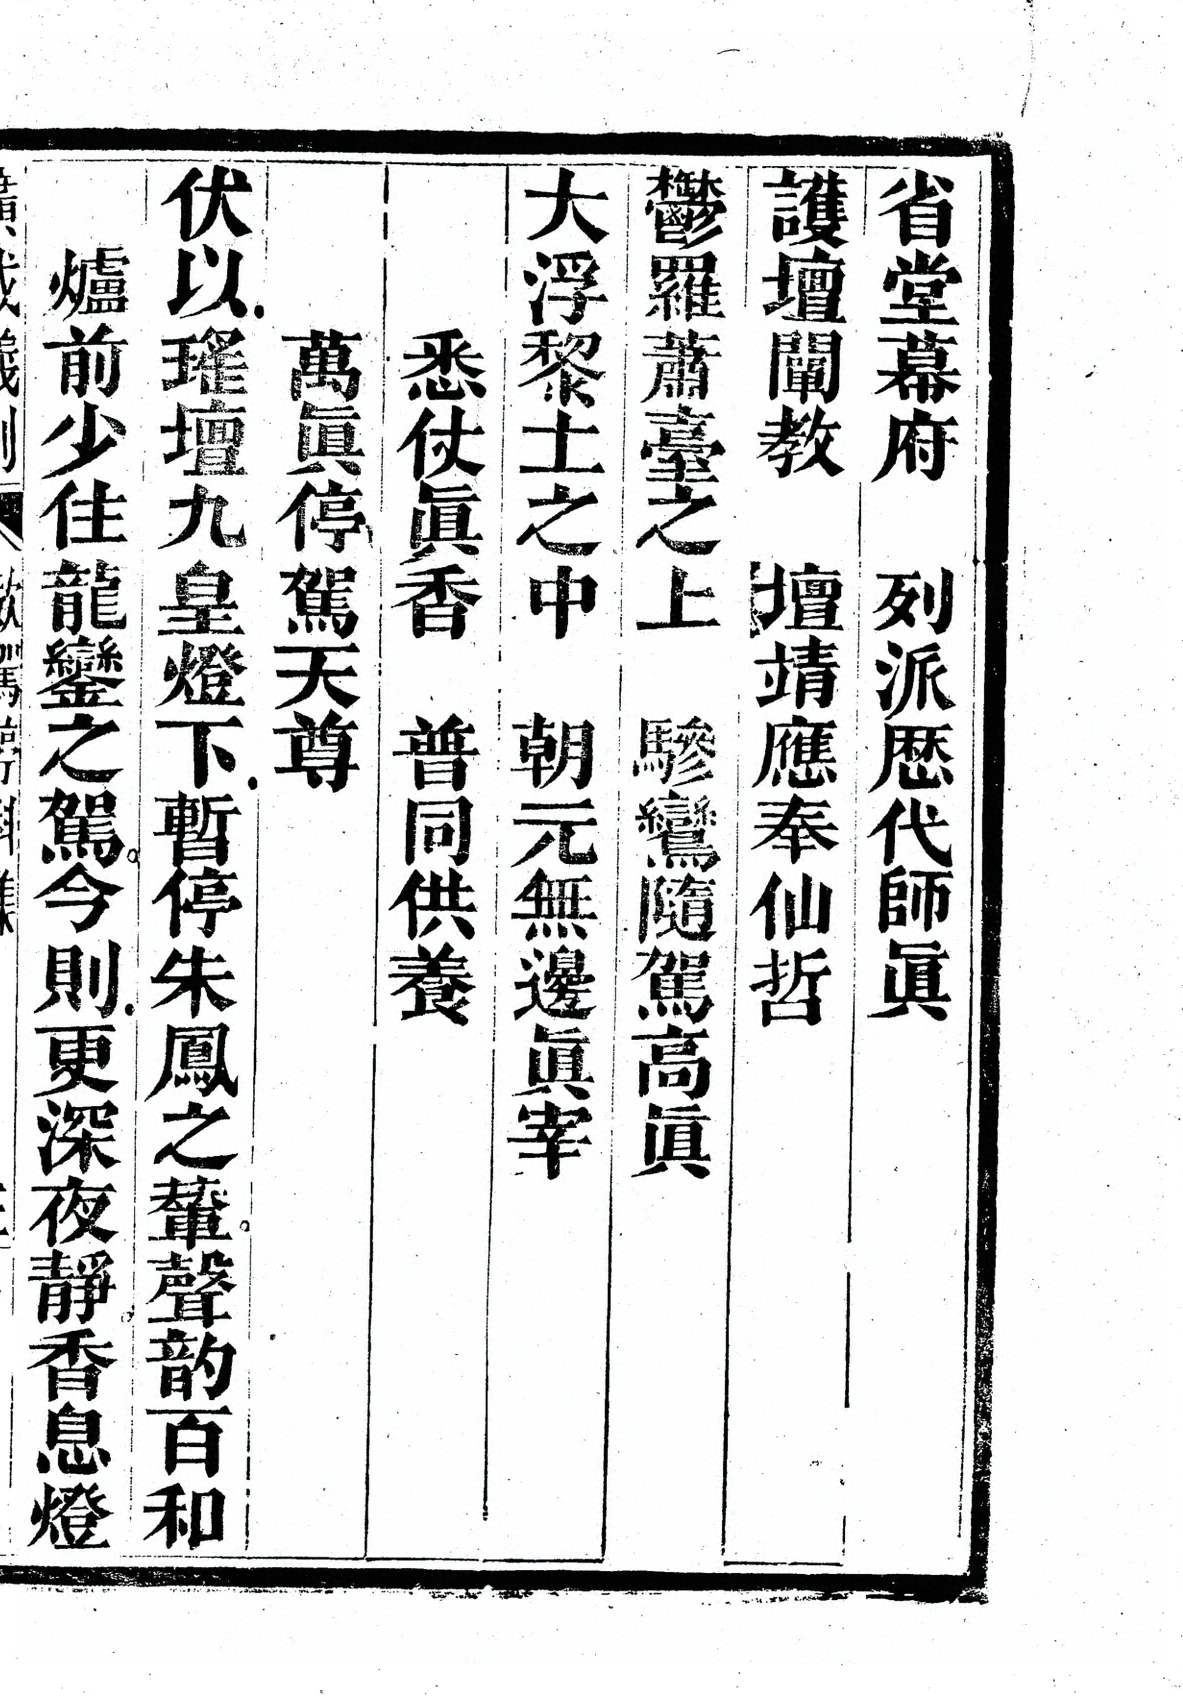 省堂幕府　列派歴代師眞
護壇闡教　壇靖應奉仙哲
鬱羅蕭臺之上　驂鸞隨駕高眞
大浮黎土之中　朝元無邊眞宰
悉仗眞香　普同供養
萬眞停駕天尊
伏以瑤壇九皇燈下暫停朱鳳之輦。聲韵百和
爐前少住龍鑾之駕。今則更深夜靜。香息燈